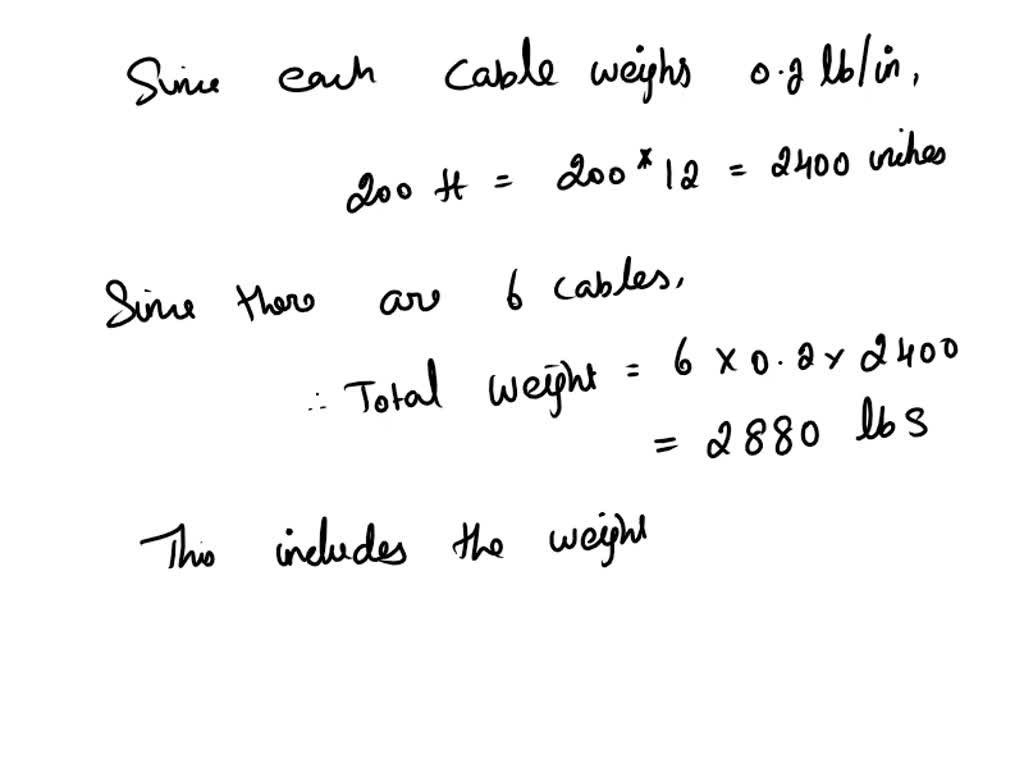 Since each cable weighs 0.2 lb/in,
200 ft = 200 * 12 = 2400 inches
Since there are 6 cables,
∴ Total weight = 6 x 0.2 x 2400
= 2880 lbs
This includes the weight